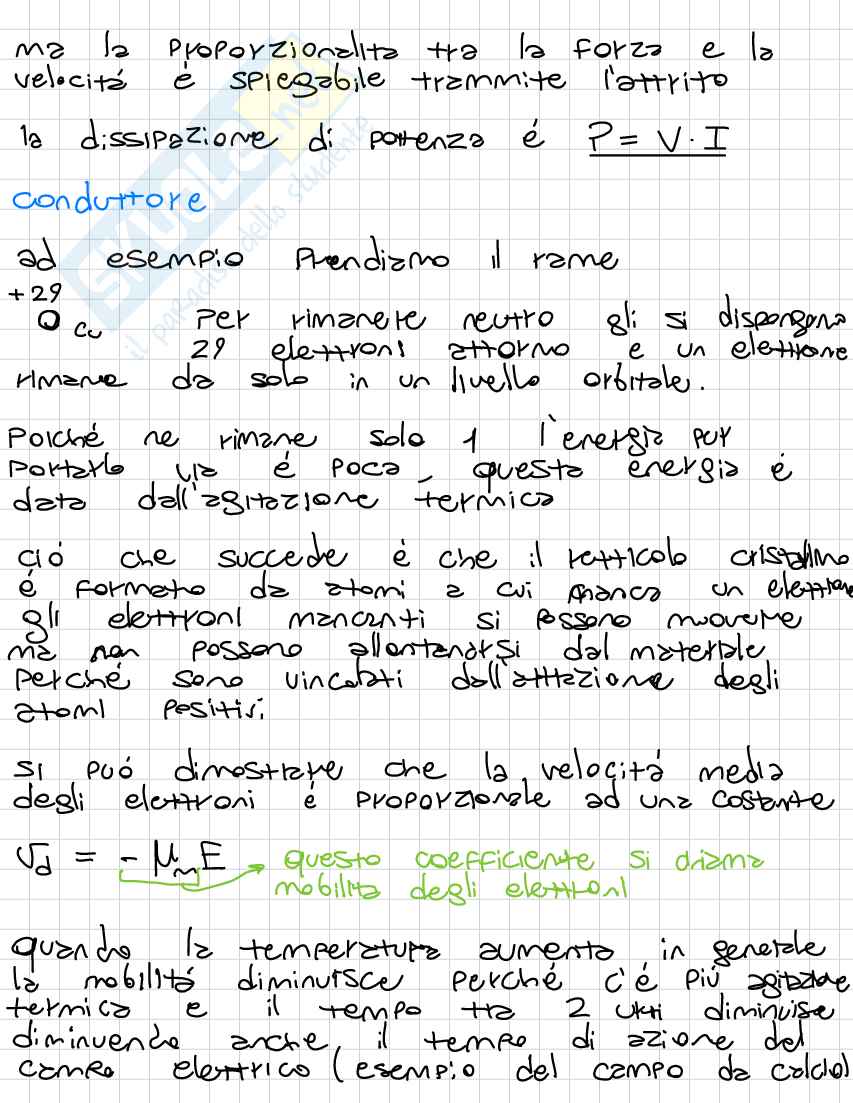 ma la proporzionalità tra la forza e la
velocità è spiegabile trammite l'attrito
la dissipazione di pottenza é P = V · I
conduttore
ad esempio Prendiamo il rame
+29
Cu per rimanere neutro gli si dispongono
29 elettroni attorno e un elettrone
rimane da solo in un livello orbitale.
Poiché ne rimane solo 1 l'energia per
portarlo via é poca, questa energia é
data dall'agitazione termica
ció che succede è che il retticolo cristallino
é formato da atomi a cui manca un elettrone
gli elettroni mancanti si possono muovere
ma non possono allontanarsi dal materiale
perché sono vincolati dall'attrazione degli
atomi positivi.
si puó dimostrare che la velocità media
degli elettroni é proporzionale ad una costante
v_d = - μ_n E questo coefficiente si chiama
mobilità degli elettroni
quando la temperatura aumenta in generale
la mobilitá diminuisce perché c'é piú agitazione
termica e il tempo tra 2 urti diminuise
diminuendo anche il tempo di azione del
campo elettrico (esempio del campo da calcio)
SKUOLA.net
il paradiso dello studente